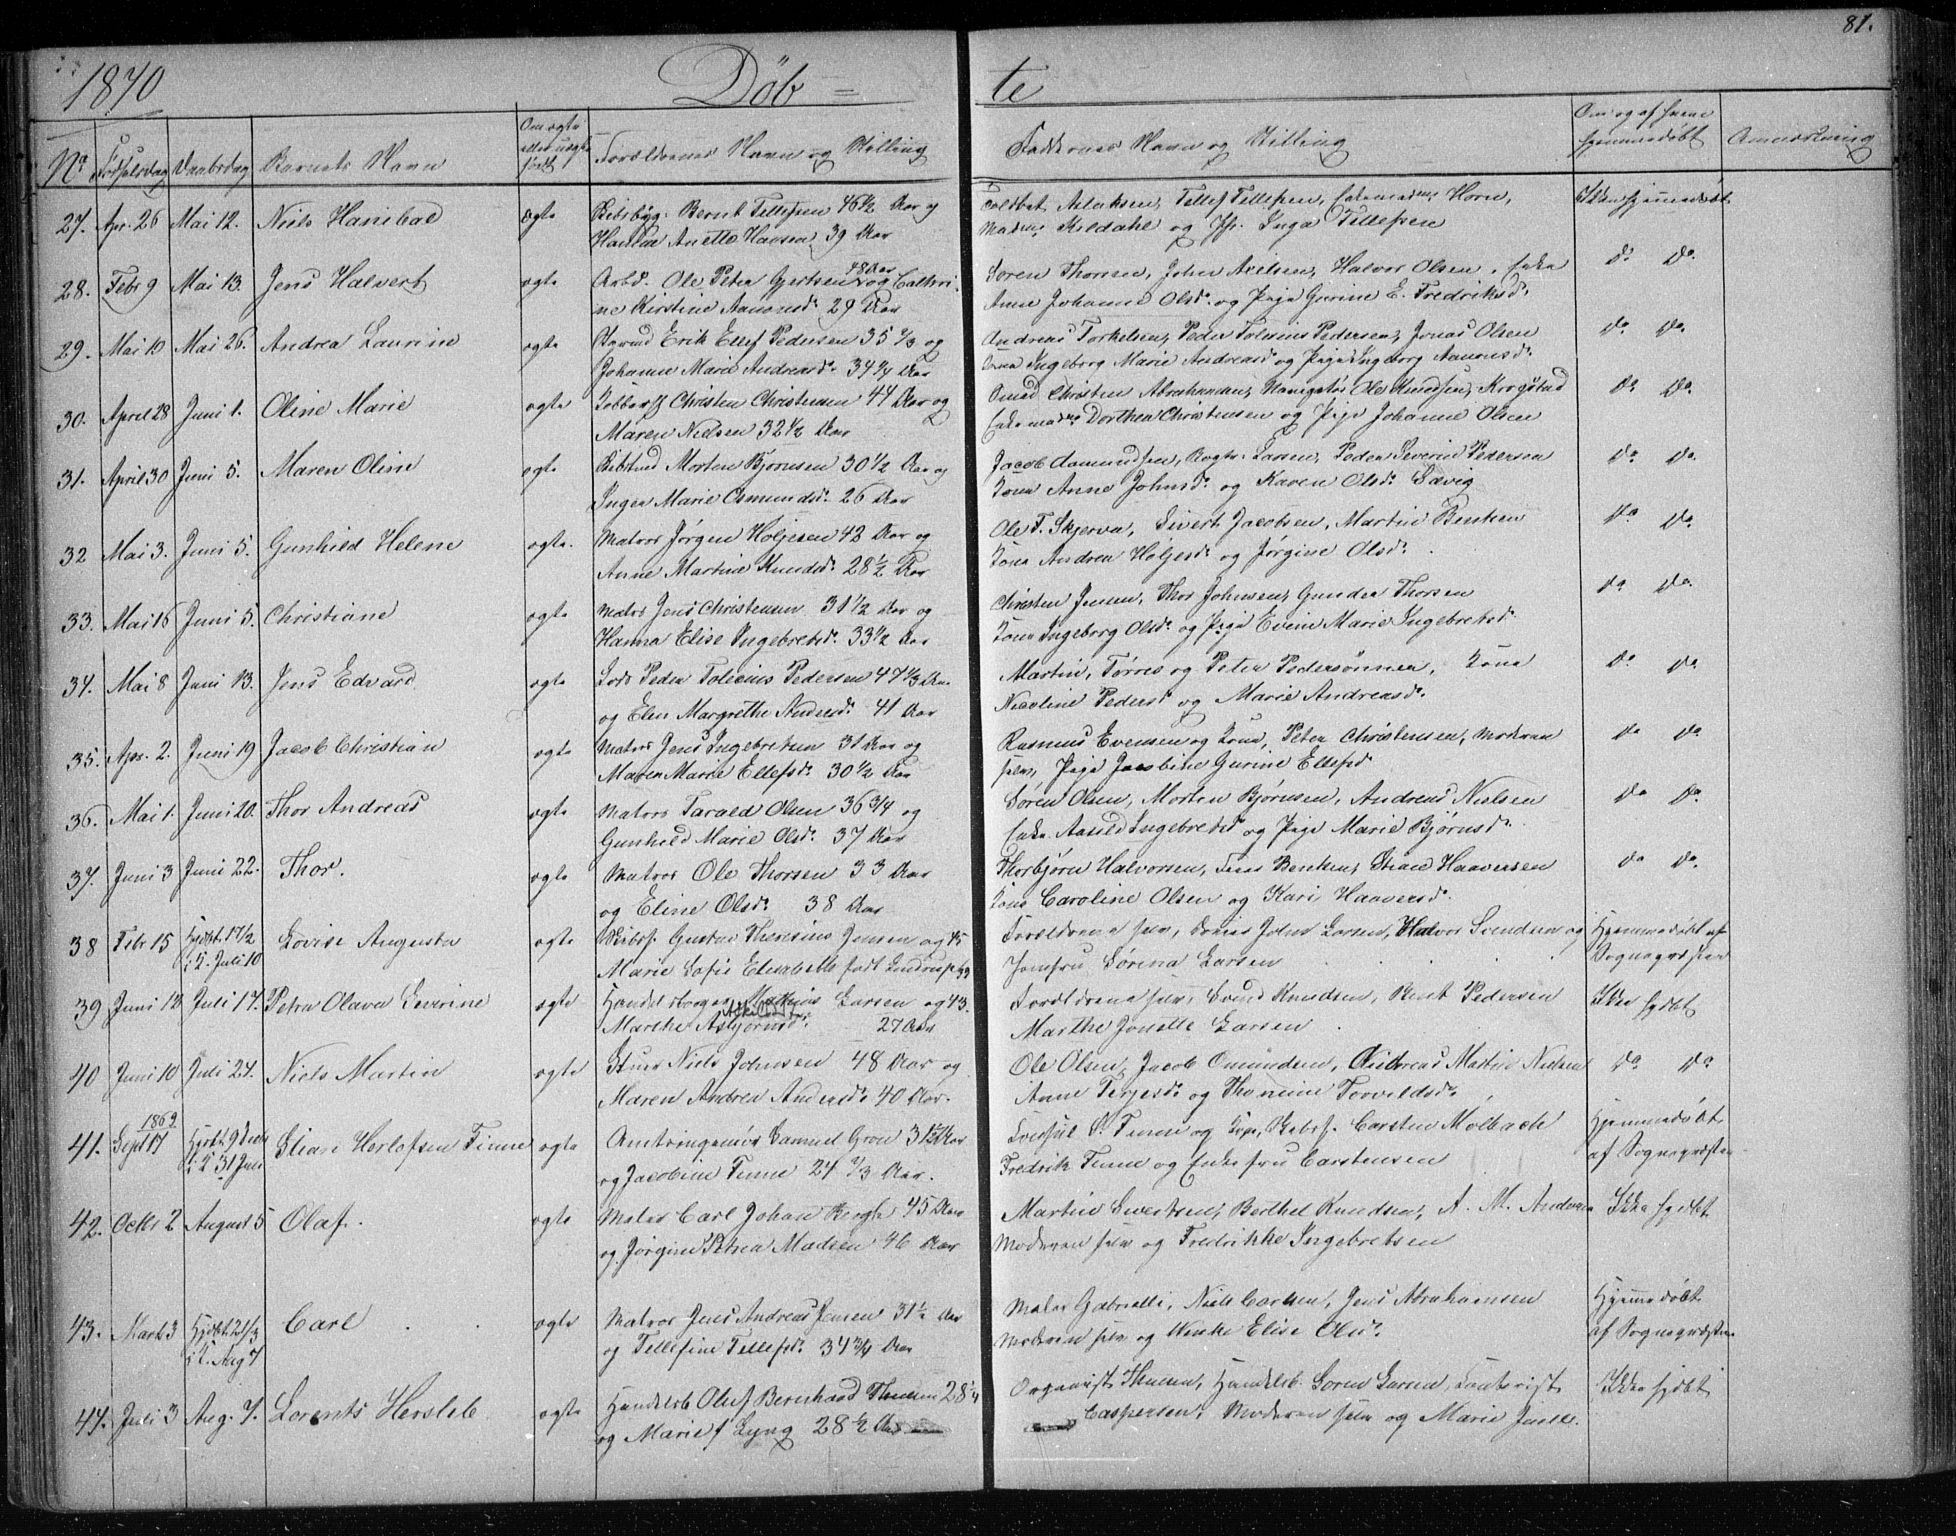 81.
1870 Døb= te
No Fødselsdag Daabsdag Barnets Navn Om ægte eller uægte født Forældrenes Navn og Stilling Faddernes Navn og Stilling Om og af hvem hjemmedøbt Anmærkning
27. Apr. 26 Mai 12. Niels Hanibal ægte Skibsbyg. Bernt Tellefsen 46½ Aar og Tellef Tellefsen, Horn, Ikke hjemmedøbt
Anette Hansen 39 Aar Kildahl og Inga Tellefsen
28. Febr 9 Mai 13. Jens Halvert ægte Arbd. Ole Peter Gjertsen 48 Aar og Cathri- Søren Thorsen, John Axelsen, Halvor Olsen, Enke do do.
ne Kirstine Aanonsdr. 29 Aar Anne Johanne Olsdr. og Pige Gurine E. Fredriksdr.
29. Mai 10 Mai 26. Andrea Laurin ægte Erik Ellef Pedersen 35 ⅔ og Andreas Torkelsen, Peder Tolesius Pedersen, Jonas Olsen do do.
Johanne Marie Andreasdr. 34 ¼ Aar Kona Ingeborg Marie Andreasd og Pige Ingeborg Aanonsdr.
30. April 28 Juni 1. Oline Marie ægte Christen Christensen 44 Aar og Smed Christen Abrahamsen, Navigatør Ole Knudsen, Krogstad do do.
Maren Nielsen 32½ Aar Enkemadme Dorthea Christensen og Pige Johanne Olsen
31. April 30 Juni 5. Maren Oline ægte Morten Bjørnsen 30½ Aar og Jacob Aamundsen, Larsen, Peder Severin Pedersen do do.
Inger Marie Osmundsdr. 26 Aar Kona Anne Johnsdr. og Karen Olsdr. Sævig
32 Mai 3. Juni 5. Gunhild Helene ægte. Matros Jørgen Holjesen 42 Aar og Ole T. Skjerva, Sivert Jacobsen, Martin Bentsen do do.
Anne Martine Knudsdr. 28½ Aar Kona Andrea Høljesdr. og Jørgine Olsdr.
33. Mai 16 Juni 5. Christiane ægte Matros Jens Christensen 31½ Aar og Christen Jensen, Thor Johnsen, Gunder Thorsen do do.
Hanna Elise Ingebretsdr. 33½ Aar Kona Ingeborg Olsdr. og Pige Evine Marie Ingebretsdr.
34. Mai 8 Juni 13. Jens Edvard ægte Lods Peder Tolesius Pedersen 47⅓ Aar Martin, Tørres og Peter Pedersønner, Kona do do.
og Elen Margrethe Andersdr. 41 Aar Nicoline Pedersd og Marie Andreasdr.
35. Apr. 2. Juni 19 Jacob Christian ægte Matros Jens Ingebretsen 31 Aar og Rasmus Evensen og Kona, Peter Christensen, Moderen do do.
Maren Marie Ellefsdr. 30½ Aar selv, Pige Jacobine Gurine Ellefsd
36. Mai 1. Juni 20. Thor Andreas ægte Matros Tarald Olsen 36¾ og Søren Olsen, Morten Bjørnsen, Andreas Nielsen do do.
Gunhild Marie Olsdr. 37 Aar Enke Aasild Ingebretsd og Pige Marie Bjørnsdr.
37. Juni 3 Juni 22. Thor. ægte Matros Ole Thorsen 33 Aar Thorbjørn Halvorsen, Jens Bentsen, Stian Haaversen do do.
og Eline Olsdr. 38 Aar Kona Caroline Olsen og Kari Haaversdr.
38 Febr 15 Hjdbt. 17/2 i K. Juli 10 Lovise Augusta ægte Gustav Theresius Jensen og 45 Forældrene selv, John Larsen, Halvor Svendsen og Hjemmedøbt af
Marie Sofie Elisabeth født Jomfru Sørina Larsen Sognepræsten
39 Juni 12 Juli 17. Petra Olava Severine ægte Handelsborger Mathias Larsen og 43. Forældrene selv, Svend Knudsen, Bent Pedersen Ikke hjdbt
Marthe Asbjørnsdr. 27 Aar Marthe Jonette Larsen
40 Juni 10 Juli 24. Niels Martin ægte Stuer Niels Johnsen 48 Aar og Ole Olsen, Jacob Omundsen, Andreas Martin Nielsen do do
Maren Andrea Andersdr. 40 Aar. Anne Terjesdr. og Thomine Torvildsdr.
41. 1869 Sept 17 Hjdbt. 9 Decbr i K 31 Juli Stian Herlofsen Finne ægte Amtsingeniør Samuel Gron 31½ Aar S. Finne og Carsten Molbach Hjemmedøbt
og Jacobine Finne 24 ⅔ Aar. Fredrik Finne og Enkefru Carstensen af Sognepræsten
42. Octbr 2 August 5 Olaf. ægte Maler Carl Johan Bergh 45 Aar Martin Sivertsen, Berthel Knudsen, A. M. Andersen Ikke hjdbt
og Jørgine Petrea Madsen 46 Aar Moderen selv og Fredrikke Ingebretsen
43. Marts 3 Hjdbt. 21/3 i K. Aug 7 Carl ægte Matros Jens Andreas Jensen 31½ Aar Maler Gabrielli, Niels Carlsen, Jens Abrahamsen Hjemmedøbt
og Tellefine Tellefsdr. 34¾ Aar Moderen selv og Wenke Elise Olsdr. af Sognepræsten
44. Juli 3 Aug. 7. Lorents Hersleb ægte Handelsb Oluf Bernhard Thuesen 28¼ Organist Thuesen, Handelsb. Søren Larsen, Kontorist Ikke hjdbt
og Marie f Lyng 28½ Aar Caspersen, Moderen selv og Marie Juell.